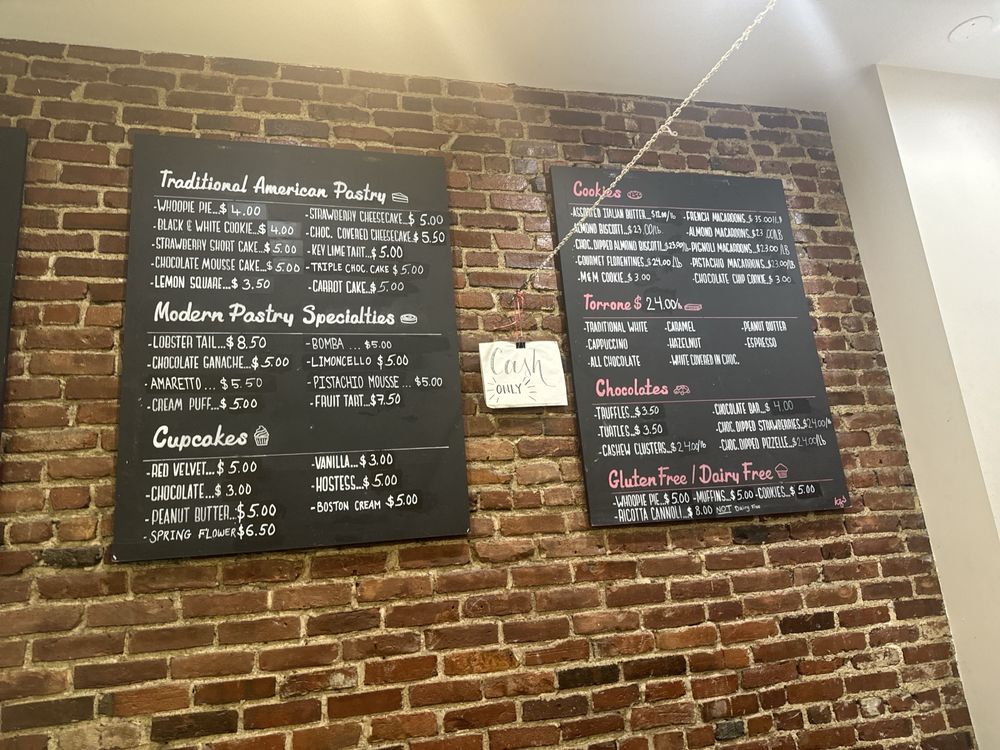 Traditional American Pastry
-WHOOPIE PIE...$ 4.00
-BLACK & WHITE COOKIE...$ 4.00
-STRAWBERRY SHORT CAKE...$ 5.00
-CHOCOLATE MOUSSE CAKE...$ 5.00
-LEMON SQUARE...$ 3.50
-STRAWBERRY CHEESECAKE...$ 5.00
-CHOC. COVERED CHEESECAKE.$ 5.50
-KEY LIME TART...$ 5.00
-TRIPLE CHOC. CAKE $ 5.00
-CARROT CAKE..$ 5.00
Modern Pastry Specialties
-LOBSTER TAIL...$ 8.50
-CHOCOLATE GANACHE...$ 5.00
-AMARETTO ... $ 5.50
-CREAM PUFF...$ 5.00
-BOMBA ... $5.00
-LIMONCELLO $ 5.00
-PISTACHIO MOUSSE ... $5.00
-FRUIT TART...$7.50
Cupcakes
-RED VELVET...$ 5.00
-CHOCOLATE...$ 3.00
-PEANUT BUTTER...$ 5.00
-SPRING FLOWER $6.50
-VANILLA...$ 3.00
-HOSTESS...$ 5.00
-BOSTON CREAM $5.00
Cash
ONLY
Cookies
-ASSORTED ITALIAN BUTTER...
-ALMOND BISCOTTI...$ 23.00/lb.
-CHOC. DIPPED ALMOND BISCOTTI..
-GOURMET FLORENTINES..$ 24.00/lb
-M&M COOKIE..$ 3.00
-FRENCH MACAROONS..$ 35.00/LB
-ALMOND MACAROONS..
-PIGNOLI MACAROONS..$23.00/LB
-PISTACHIO MACAROONS..$23.00/LB
-CHOCOLATE CHIP COOKIE..$ 3.00
Torrone $ 24.00/lb
-TRADITIONAL WHITE -CARAMEL -PEANUT BUTTER
-CAPPUCCINO -HAZELNUT -ESPRESSO
-ALL CHOCOLATE -WHITE COVERED IN CHOC.
Chocolates
-TRUFFLES..$ 3.50
-TURTLES..$ 3.50
-CASHEW CLUSTERS..$24.00/lb
-CHOCOLATE BAR...$ 4.00
-CHOC. DIPPED STRAWBERRIES..$24.00/lb
-CHOC. DIPPED PIZZELLE..$24.00/lb
Gluten Free / Dairy Free
-WHOOPIE PIE..$ 5.00 -MUFFINS..$ 5.00 -COOKIES.. $ 5.00
-RICOTTA CANNOLI..$ 8.00 NOT Dairy Free